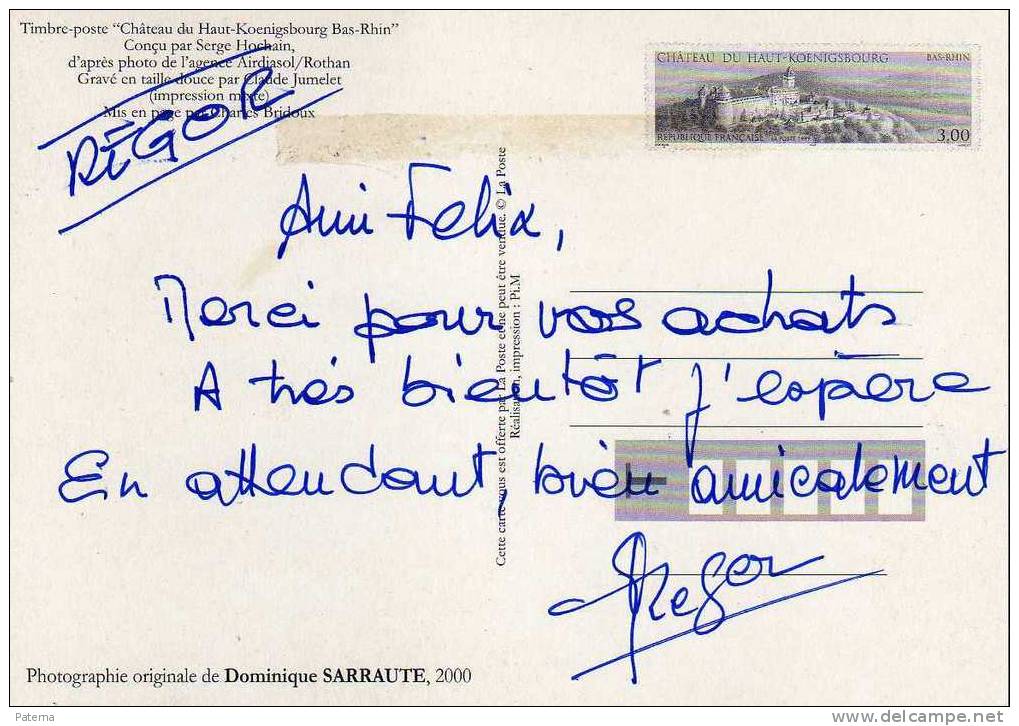 Timbre-poste “Château du Haut-Koenigsbourg Bas-Rhin”
Conçu par Serge Hochain,
d'après photo de l'agence Airdiasol/Rothan
Gravé en taille douce par Claude Jumelet
(impression mixte)
Mis en page par Charles Bridoux
RÉGOR
CHÂTEAU DU HAUT-KOENIGSBOURG BAS-RHIN
RÉPUBLIQUE FRANÇAISE LA POSTE 3,00
Ami Felix,
Merci pour vos achats
A très bientôt j'espère
En attendant, bien amicalement
Regor
Cette carte vous est offerte par La Poste et ne peut être vendue. © La Poste
Réalisation, impression : Pi.M
Photographie originale de Dominique SARRAUTE, 2000
Paterna
www.delcampe.net